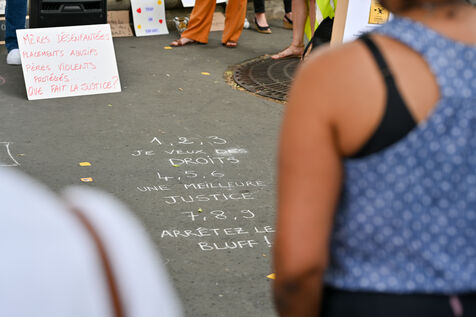 MÈRES DÉSENFANTÉES
PLACEMENTS ABUSIFS
PÈRES VIOLENTS
PROTÉGÉS
QUE FAIT LA JUSTICE?
1, 2, 3
JE VEUX DES
DROITS
4, 5, 6
UNE MEILLEURE
JUSTICE
7, 8, 9
ARRÊTEZ LE
BLUFF !